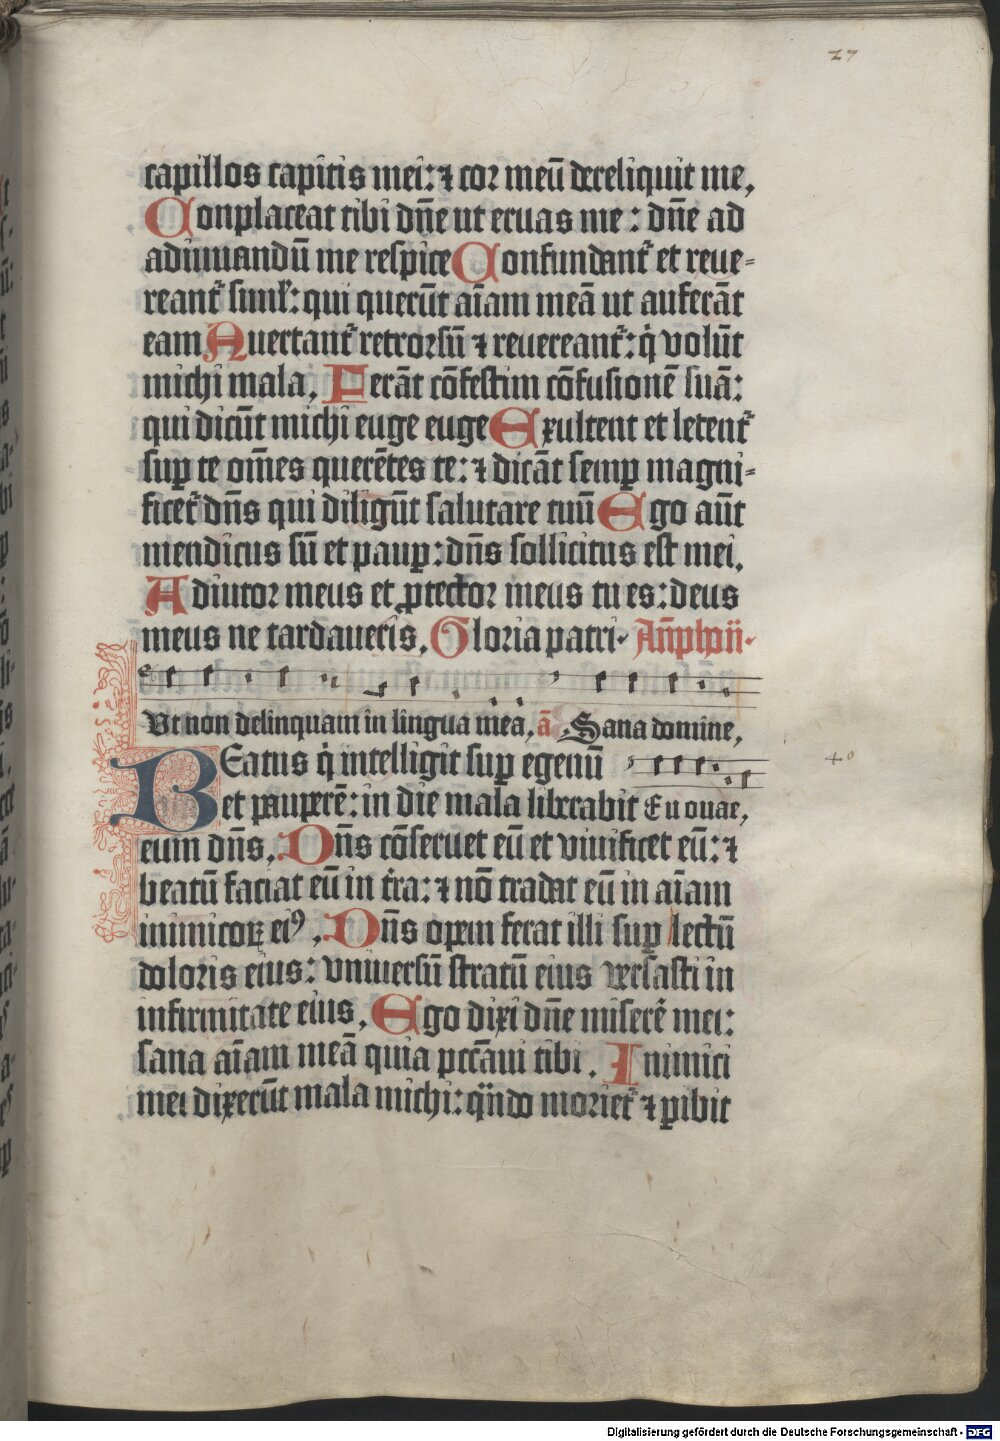 27
capillos capitis mei: ⁊ cor meū dereliquit me,
Conplaceat tibi dn̄e ut eruas me: dn̄e ad
adiuuandū me respice Confundant᷑ et reue=
reant᷑ siml̄: qui querūt aīam meā ut auferāt
eam Auertant᷑ retrorsū ⁊ reuereant᷑: q̇ volūt
michi mala, Ferāt cōfestim cōfusionē suā:
qui dicūt michi euge euge Exultent et letent᷑
suꝑ te om̄es querētes te: ⁊ dicāt semꝑ magni=
ficet᷑ dn̄s qui diligūt salutare tuū Ego aūt
mendicus sū et pauꝑ: dn̄s sollicitus est mei,
Adiutor meus et ꝓtector meus tu es: deus
meus ne tardaueris, Gloria patri. An̄phoii.
Ut non delinquam in lingua mea, ā. Sana domine,
BEatus q̇ intelligit suꝑ egenū
40
et pauperē: in die mala liberabit Eu ouae,
eum dn̄s, Dn̄s cōseruet eū et viuificet eū: ⁊
beatū faciat eū in t̄ra: ⁊ nō tradat eū in aīam
inimicoꝝ eiꝰ, Dn̄s opem ferat illi suꝑ lectū
doloris eius: vniuersū stratū eius versasti in
infirmitate eius, Ego dixi dn̄e miserē mei:
sana aīam meā quia peccāui tibi, Inimici
mei dixerūt mala michi: qn̄do moriet᷑ ⁊ ꝑibit
Digitalisierung gefördert durch die Deutsche Forschungsgemeinschaft - DFG